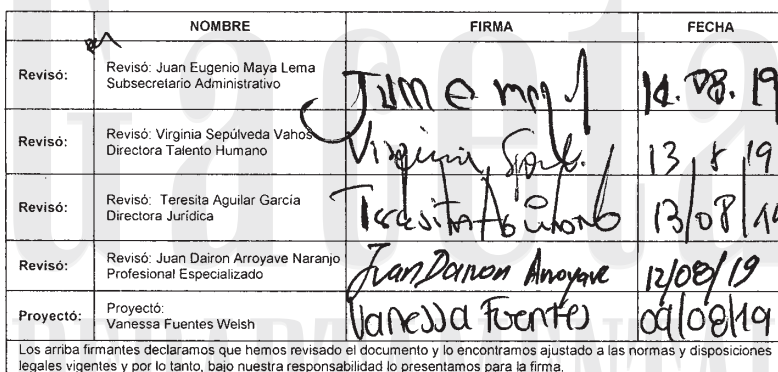 NOMBRE FIRMA FECHA
Revisó: Revisó: Juan Eugenio Maya Lema
Subsecretario Administrativo
14.08.19
Revisó: Revisó: Virginia Sepúlveda Vahos
Directora Talento Humano
13 8 19
Revisó: Revisó: Teresita Aguilar García
Directora Jurídica
13/08/19
Revisó: Revisó: Juan Dairon Arroyave Naranjo
Profesional Especializado
Juan Dairon Arroyave 12/08/19
Proyectó: Proyectó:
Vanessa Fuentes Welsh
Vanessa Fuentes 09/08/19
Los arriba firmantes declaramos que hemos revisado el documento y lo encontramos ajustado a las normas y disposiciones
legales vigentes y por lo tanto, bajo nuestra responsabilidad lo presentamos para la firma.